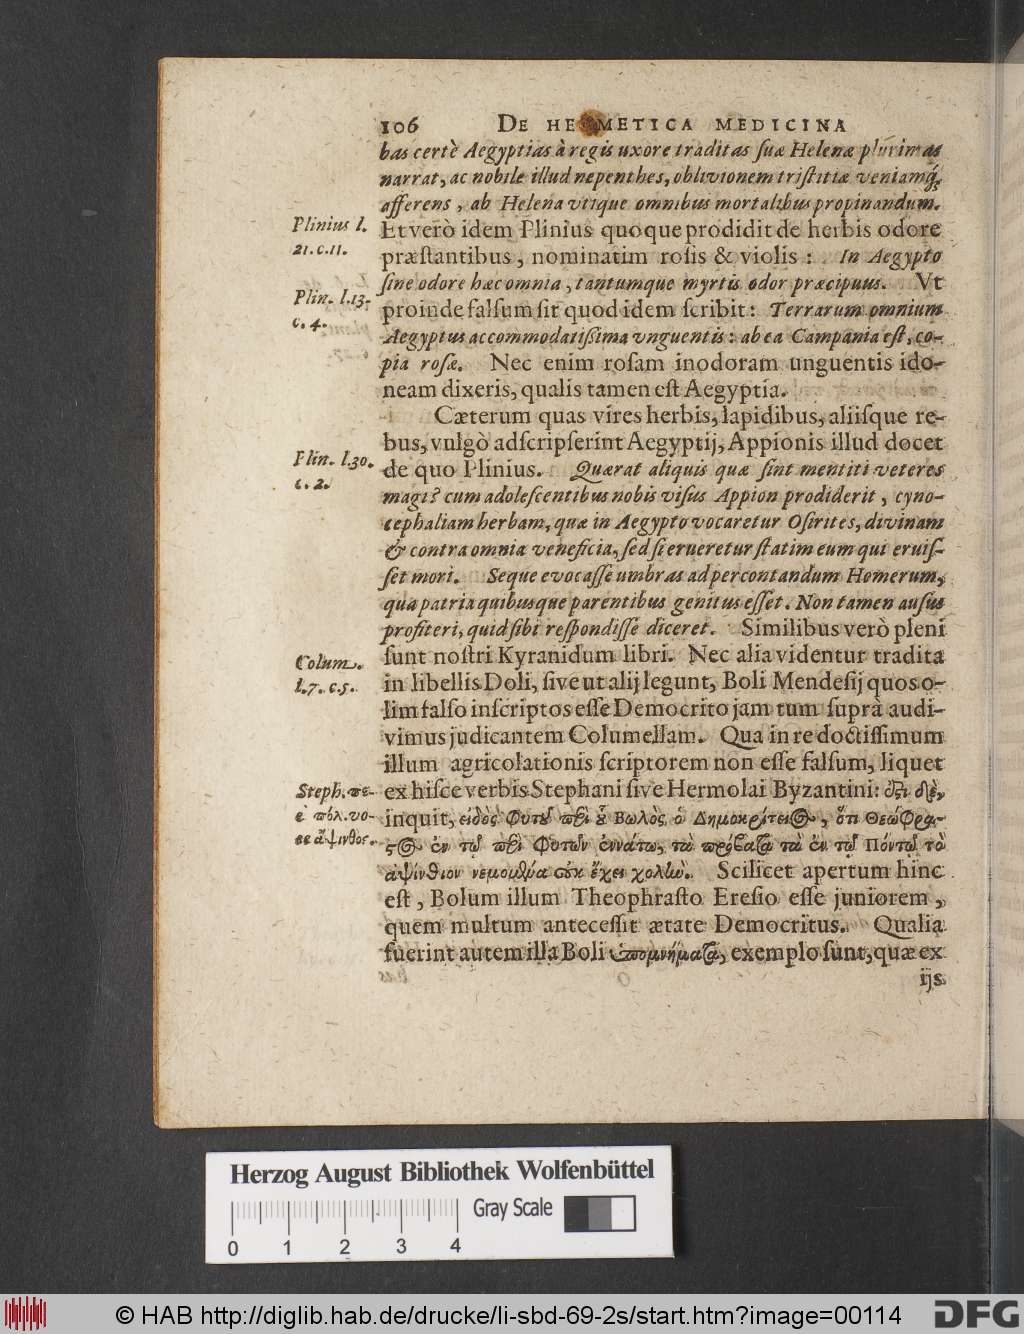 106 DE HERMETICA MEDICINA
bas certè Aegyptias à regis uxore traditas suæ Helenæ plurimas
narrat, ac nobile illud nepenthes, oblivionem tristitiæ veniamq́;
afferens, ab Helena utique omnibus mortalibus propinandum.
Plinius l.
21. c. 11.
Et verò idem Plinius quoque prodidit de herbis odore
præstantibus, nominatim rosis & violis: In Aegypto
sine odore hæc omnia, tantumque myrtis odor præcipuus. Vt
Plin. l. 13.
c. 4.
proinde falsum sit quod idem scribit: Terrarum omnium
Aegyptus accommodatissima vnguentis: ab ea Campania est, co-
pia rosæ. Nec enim rosam inodoram unguentis ido-
neam dixeris, qualis tamen est Aegyptia.
Cæterum quas vires herbis, lapidibus, aliisque re-
bus, vulgò adscripserint Aegyptij, Appionis illud docet
Plin. l. 30.
c. 2.
de quo Plinius. Quærat aliquis quæ sint mentiti veteres
magi? cum adolescentibus nobis visus Appion prodiderit, cyno-
cephaliam herbam, quæ in Aegypto vocaretur Osirites, divinam
& contra omnia veneficia, sed si erueretur statim eum qui eruis-
set mori. Seque evocasse umbras ad percontandum Homerum,
qua patria quibusque parentibus genitus esset. Non tamen ausus
profiteri, quid sibi respondisse diceret. Similibus verò pleni
sunt nostri Kyranidum libri. Nec alia videntur tradita
Colum.
l. 7. c. 5.
in libellis Doli, sive ut alij legunt, Boli Mendesij quos o-
lim falso inscriptos esse Democrito jam tum suprà audi-
vimus judicantem Columellam. Qua in re doctissimum
illum agricolationis scriptorem non esse falsum, liquet
Steph. πε-
ὲ πόλ. vo-
ce ἀψινθος.
ex hisce verbis Stephani sive Hermolai Byzantini: ἔστι δὲ,
inquit, εἶδος φυτοῦ περὶ οὗ Βωλὸς ὁ Δημοκρίτειος, ὅτι Θεόφρα-
στος ἐν τῷ περὶ φυτῶν ἐννάτῳ, τὰ πρόβατα τὰ ἐν τῷ Πόντῳ τὸ
ἀψίνθιον νεμόμενα οὐκ ἔχει χολήν. Scilicet apertum hinc
est, Bolum illum Theophrasto Eresio esse juniorem,
quem multum antecessit ætate Democritus. Qualia
fuerint autem illa Boli ὑπομνήματα, exemplo sunt, quæ ex
ijs
Herzog August Bibliothek Wolfenbüttel
Gray Scale
0 1 2 3 4
© HAB http://diglib.hab.de/drucke/li-sbd-69-2s/start.htm?image=00114
DFG